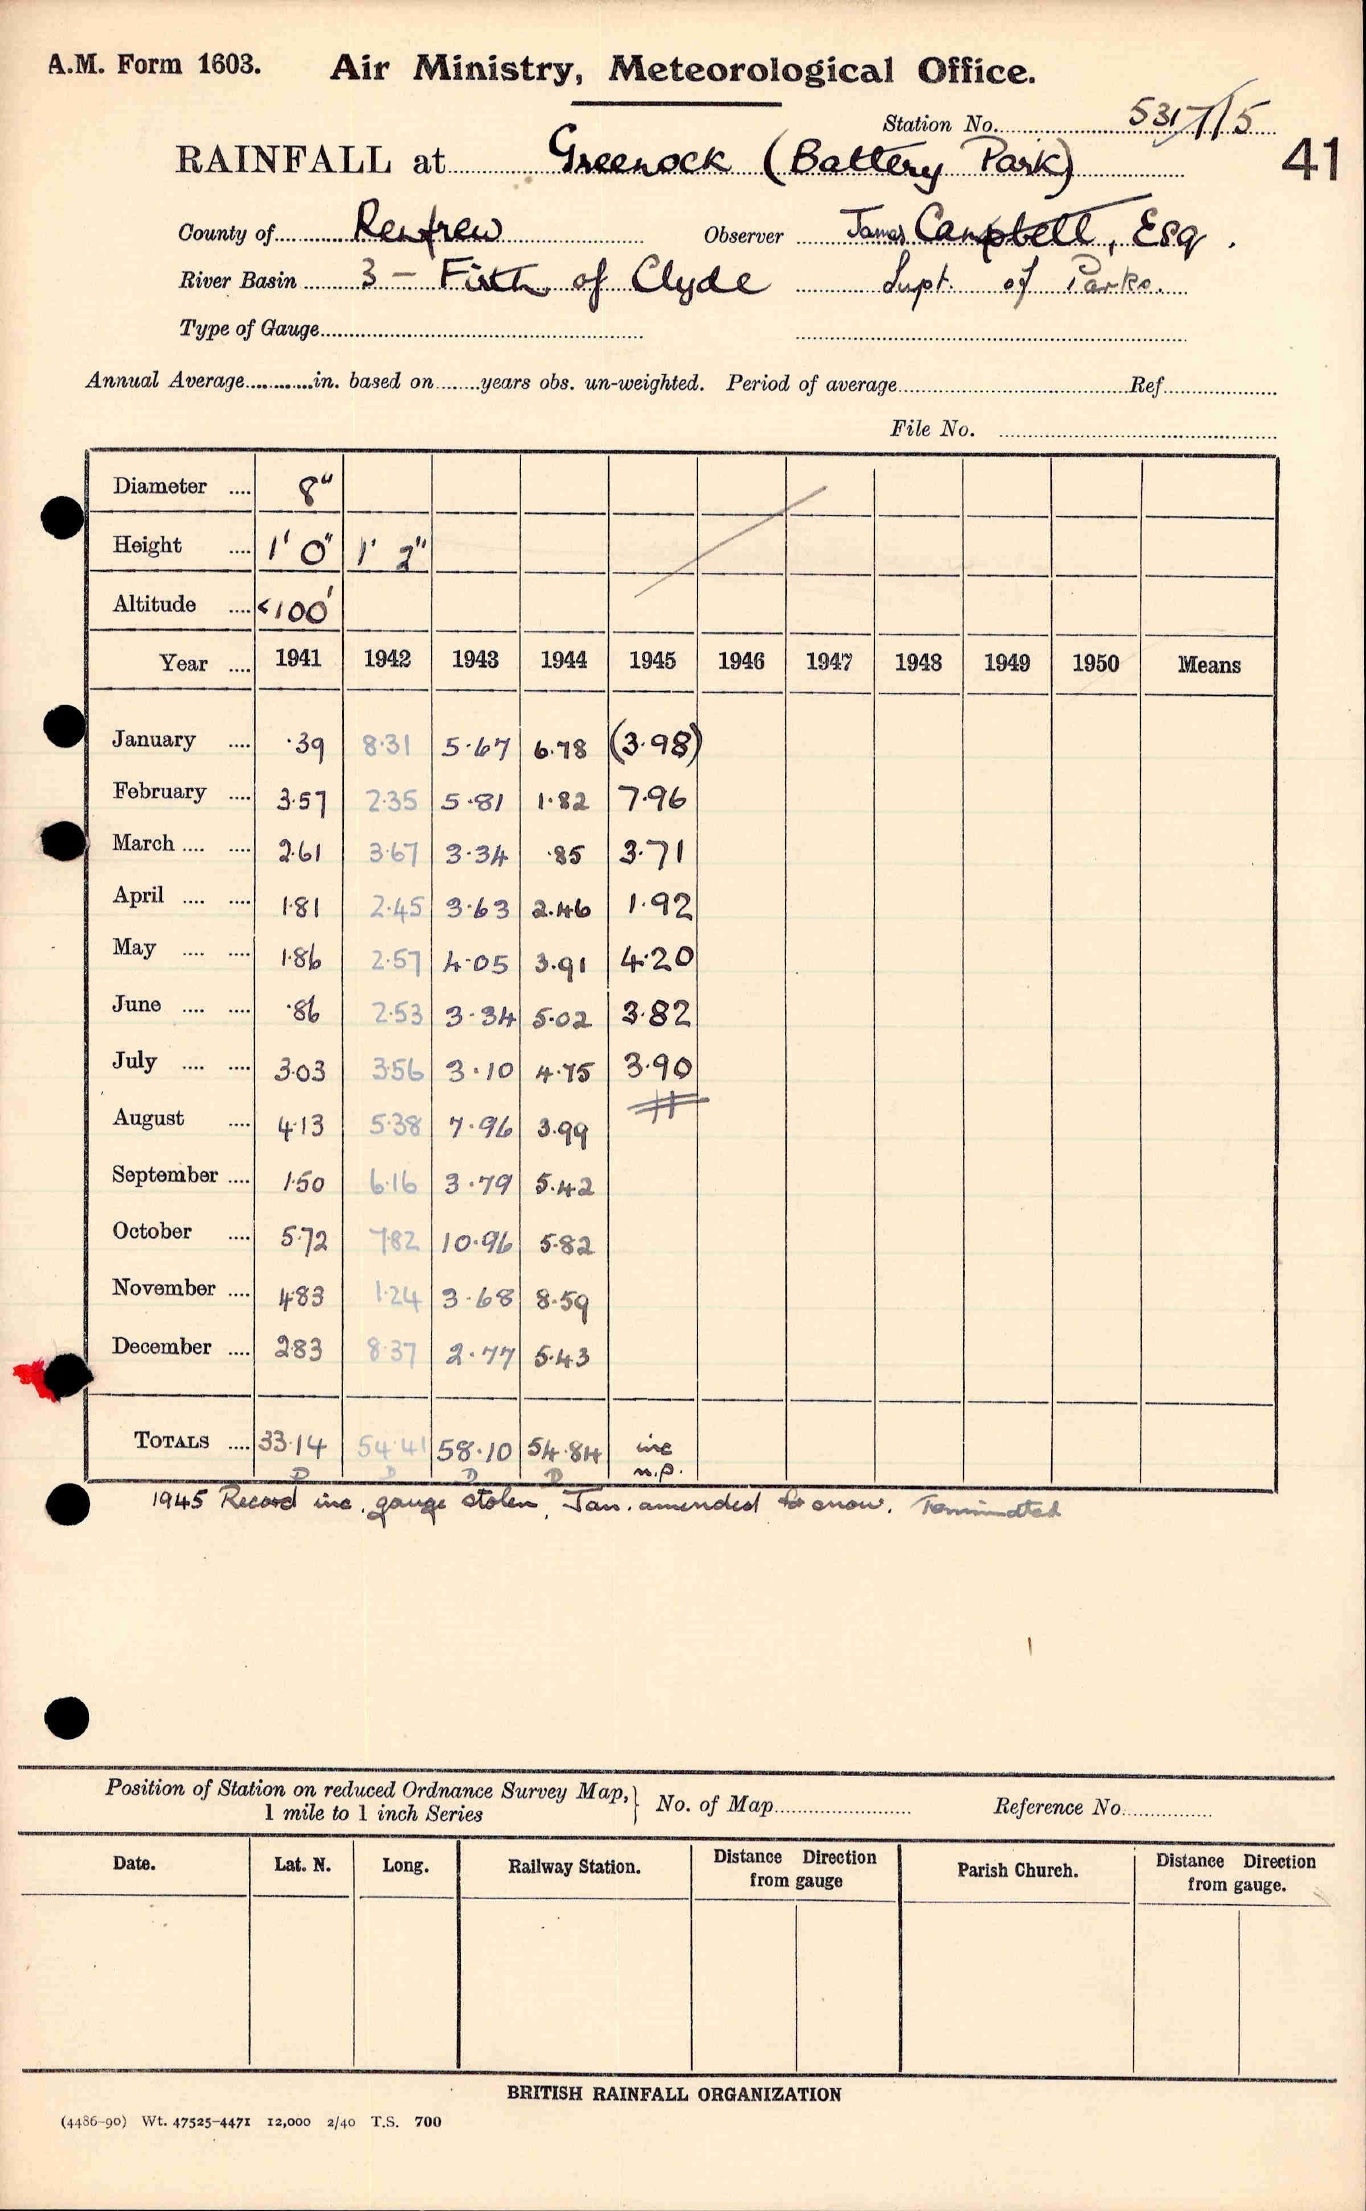 A.M. Form 1603. Air Ministry, Meteorological Office.
Station No. 5317/5
RAINFALL at Greenock (Battery Park) 41
County of Renfrew Observer James Campbell, Esq.
River Basin 3 - Firth of Clyde Supt. of Parks.
Type of Gauge
Annual Average in. based on years obs. un-weighted. Period of average Ref
File No.
Diameter .... 8"
Height .... 1' 0" 1' 2"
Altitude .... <100'
Year .... 1941 1942 1943 1944 1945 1946 1947 1948 1949 1950 Means
January .... ·39 8·31 5·67 6·78 (3·98)
February .... 3·57 2·35 5·81 1·82 7·96
March .... .... 2·61 3·67 3·34 ·85 3·71
April .... .... 1·81 2·45 3·63 2·46 1·92
May .... .... 1·86 2·57 4·05 3·91 4·20
June .... .... ·86 2·53 3·34 5·02 3·82
July .... .... 3·03 3·56 3·10 4·75 3·90
August .... 4·13 5·38 7·96 3·99
September .... 1·50 6·16 3·79 5·42
October .... 5·72 7·82 10·96 5·82
November .... 4·83 1·24 3·68 8·59
December .... 2·83 8·37 2·77 5·43
TOTALS .... 33·14 54·41 58·10 54·84 inc
D D D D n.p.
1945 Record inc, gauge stolen, Jan. amended for snow. Terminated
Position of Station on reduced Ordnance Survey Map, } No. of Map Reference No.
1 mile to 1 inch Series
Date. Lat. N. Long. Railway Station. Distance from gauge Direction Parish Church. Distance Direction from gauge.
BRITISH RAINFALL ORGANIZATION
(4486-90) Wt. 47525-4471 12,000 2/40 T.S. 700